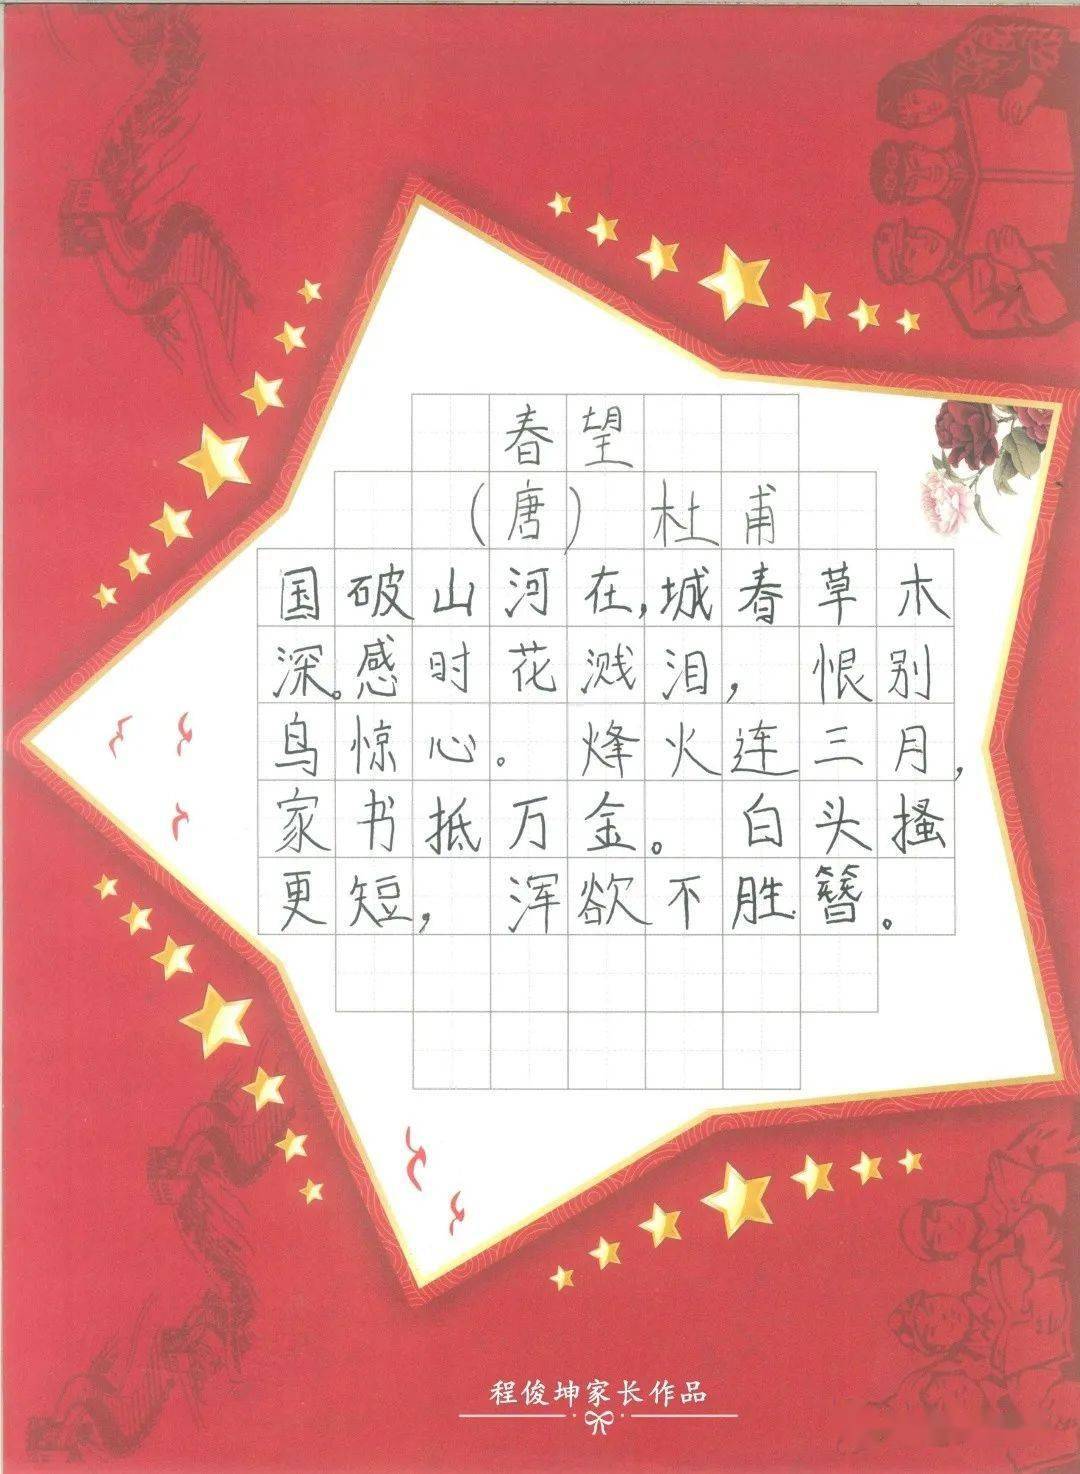 春望
（唐）杜甫
国破山河在，城春草木
深。感时花溅泪，恨别
鸟惊心。烽火连三月，
家书抵万金。白头搔
更短，浑欲不胜簪。
程俊坤家长作品